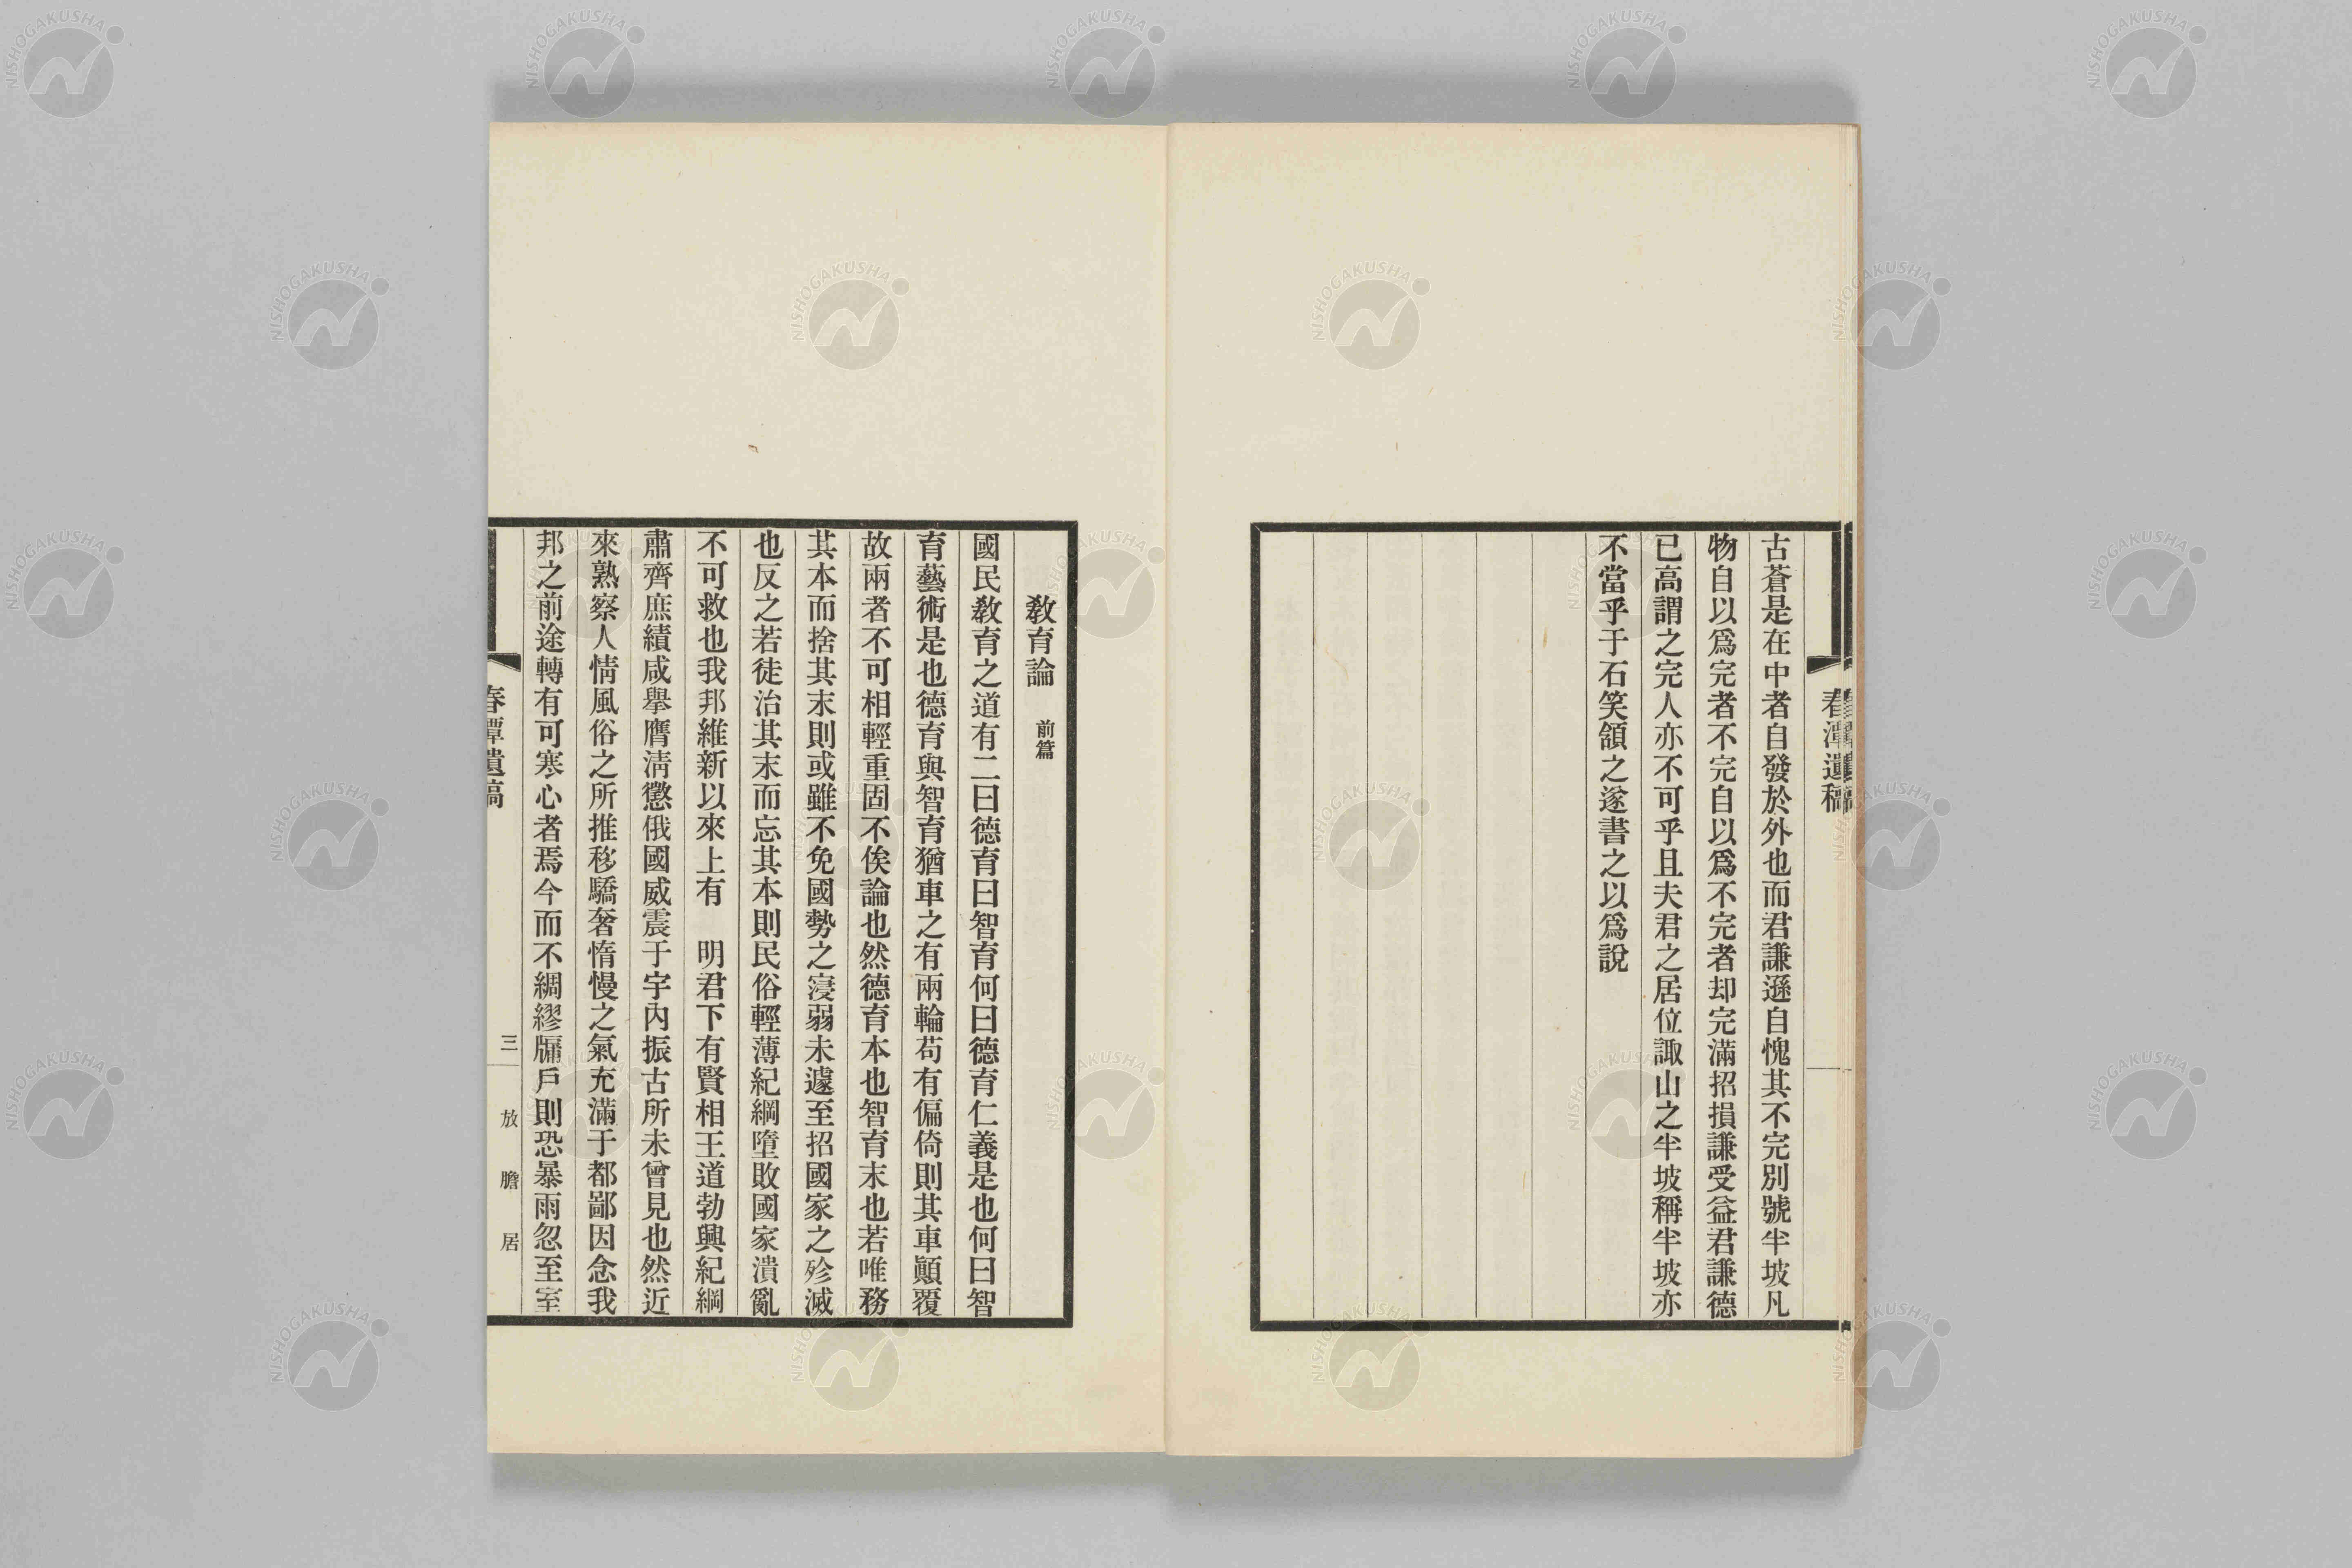 春潭遺稿
古蒼是在中者自發於外也而君謙遜自愧其不完別號半坡凡
物自以爲完者不完自以爲不完者却完滿招損謙受益君謙德
已高謂之完人亦不可乎且夫君之居位諏山之半坡稱半坡亦
不當乎于石笑領之遂書之以爲說
敎育論 前篇
國民敎育之道有二曰德育曰智育何曰德育仁義是也何曰智
育藝術是也德育與智育猶車之有兩輪苟有偏倚則其車顚覆
故兩者不可相輕重固不俟論也然德育本也智育末也若唯務
其本而捨其末則或雖不免國勢之寖弱未遽至招國家之殄滅
也反之若徒治其末而忘其本則民俗輕薄紀綱墮敗國家潰亂
不可救也我邦維新以來上有 明君下有賢相王道勃興紀綱
肅齊庶績咸擧膺淸懲俄國威震于宇內振古所未曾見也然近
來熟察人情風俗之所推移驕奢惰慢之氣充滿于都鄙因念我
邦之前途轉有可寒心者焉今而不綢繆牖戶則恐暴雨忽至室
春潭遺稿
三
放膽居
NISHOGAKUSHA